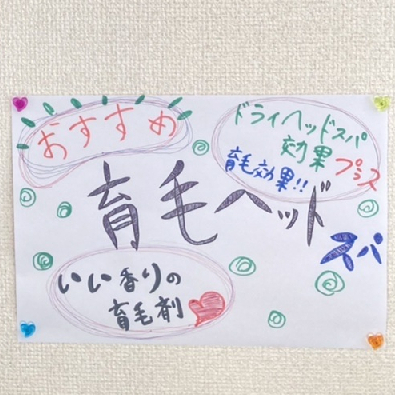 おすすめ
ドライヘッドスパ
効果プラス
育毛効果!!
育毛ヘッド
スパ
いい香りの
育毛剤